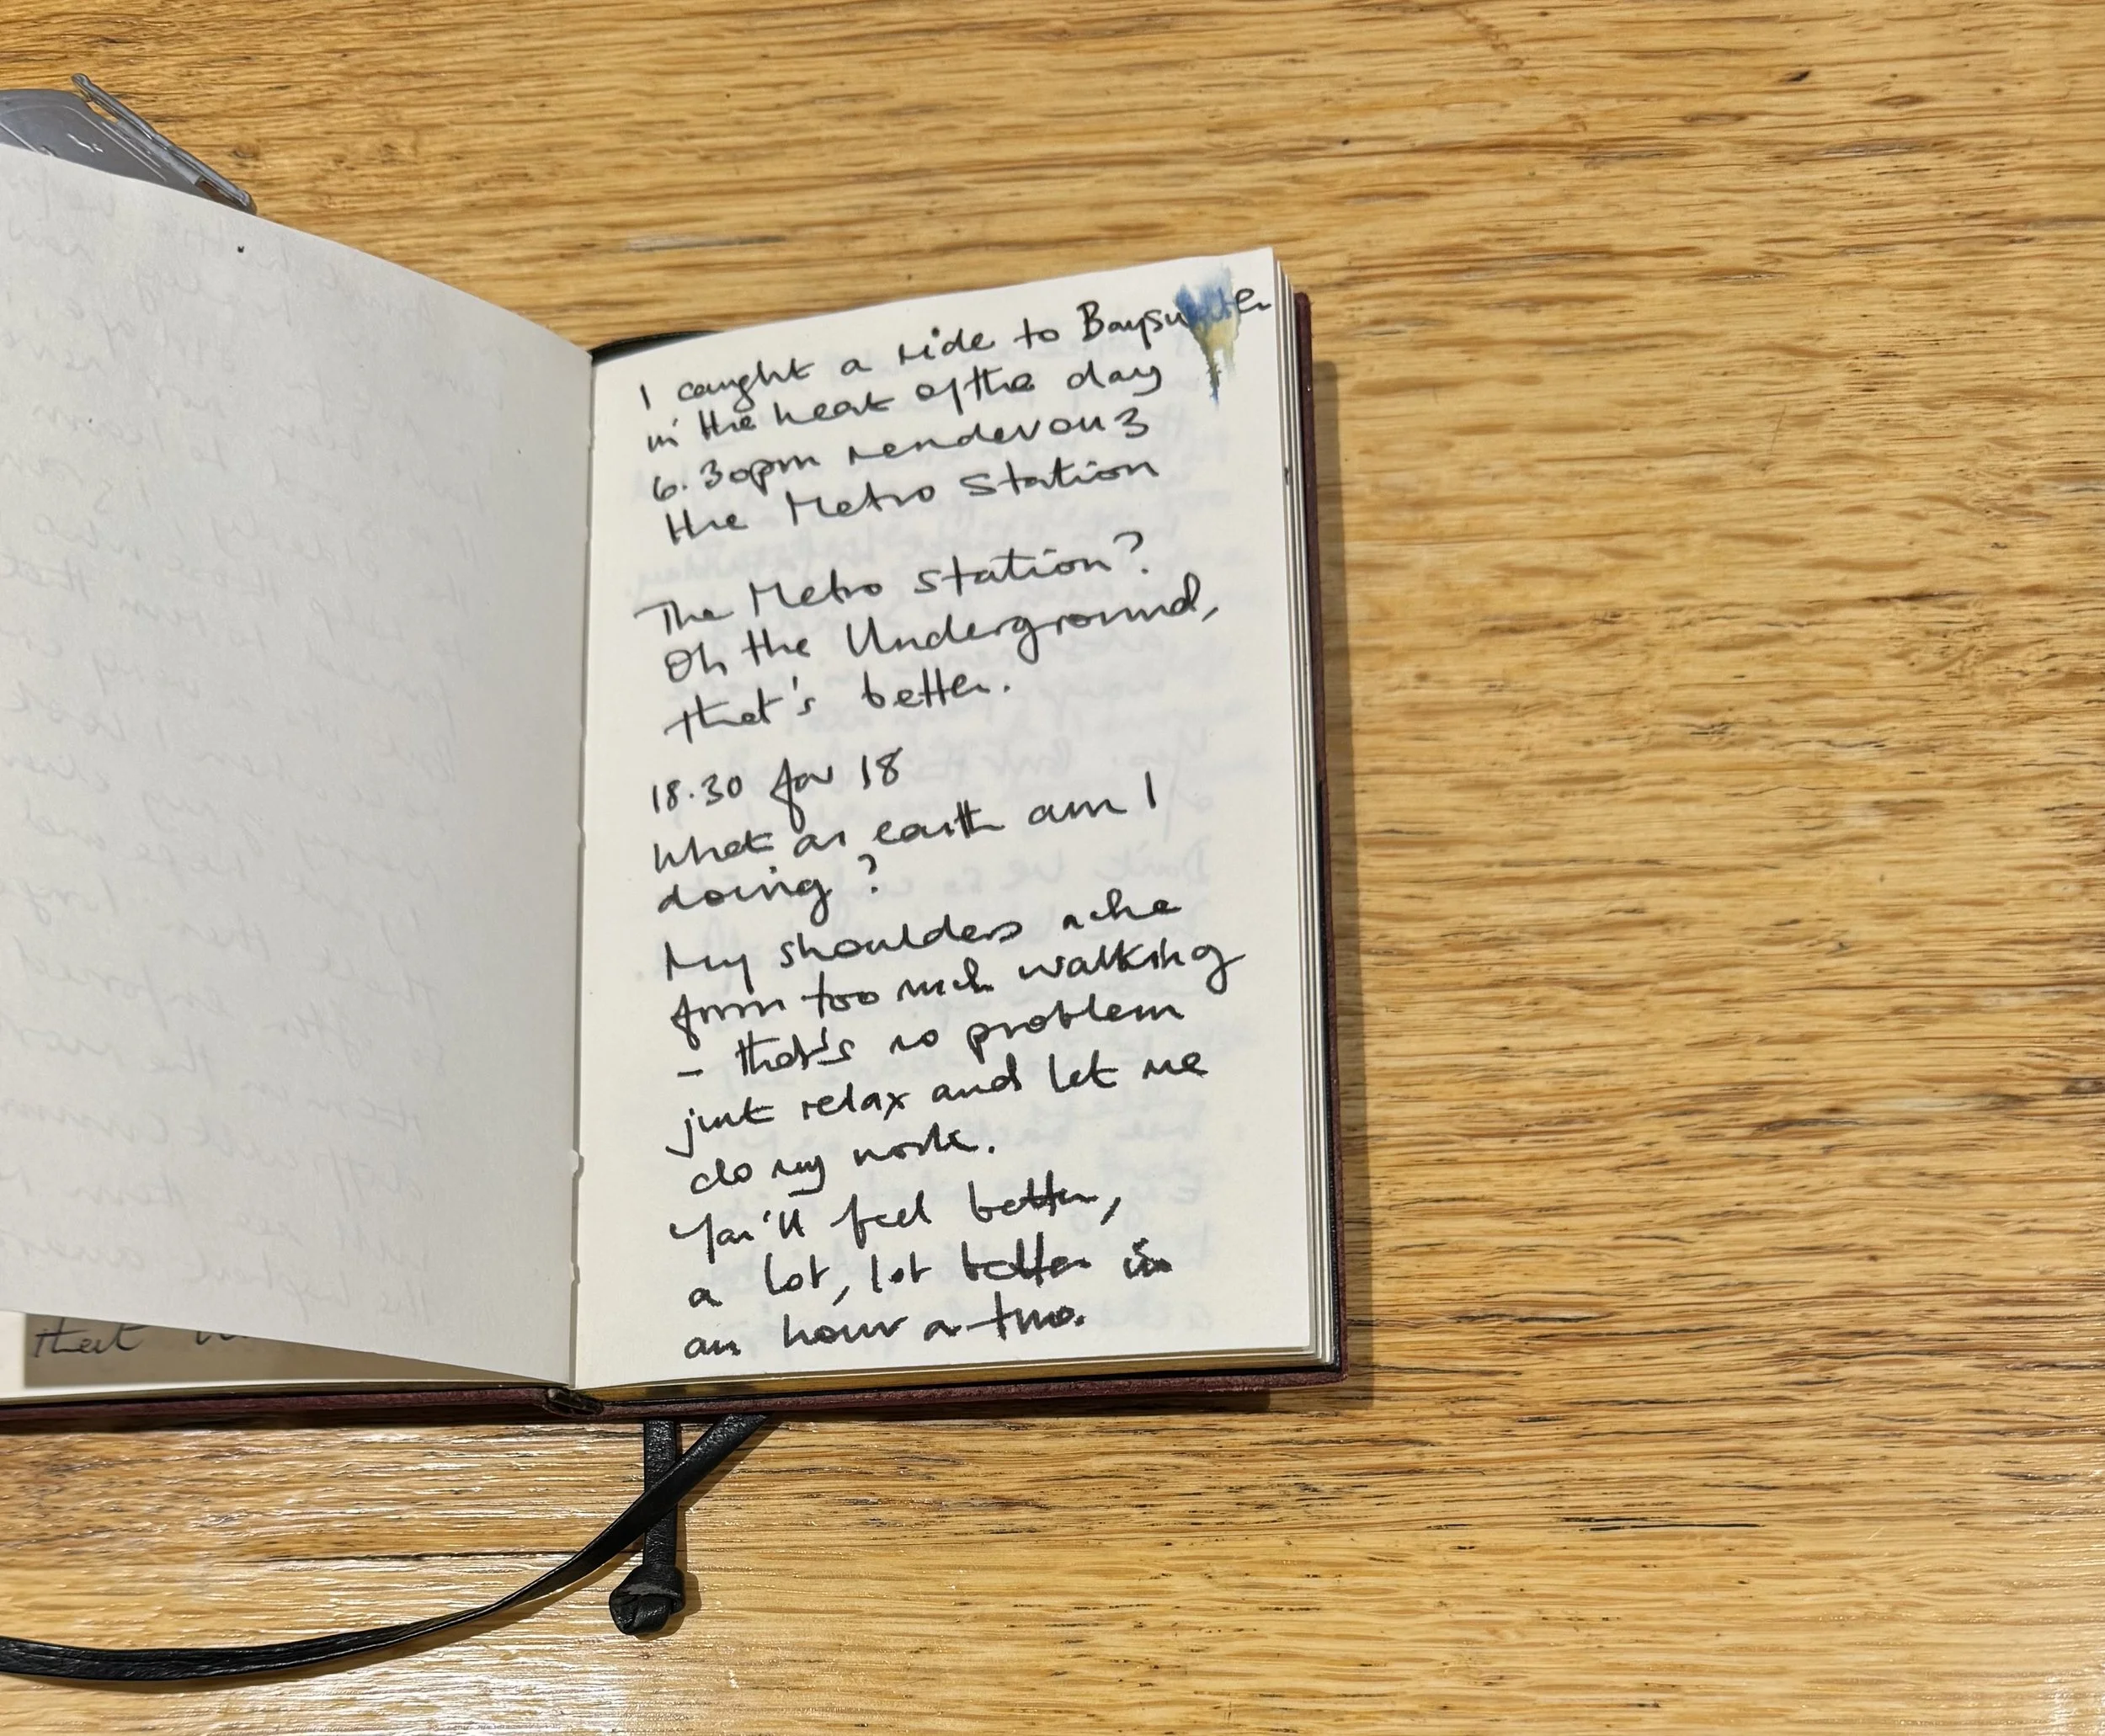 I caught a ride to Bayswater
in the heat of the day
6.30pm rendevouz
the Metro Station
The Metro Station?
Oh the Underground,
that's better.
18.30 for 18
What on earth am I
doing?
My shoulders ache
from too much walking
- that's no problem
just relax and let me
do my work.
You'll feel better,
a lot, lot better in
an hour or two.
that